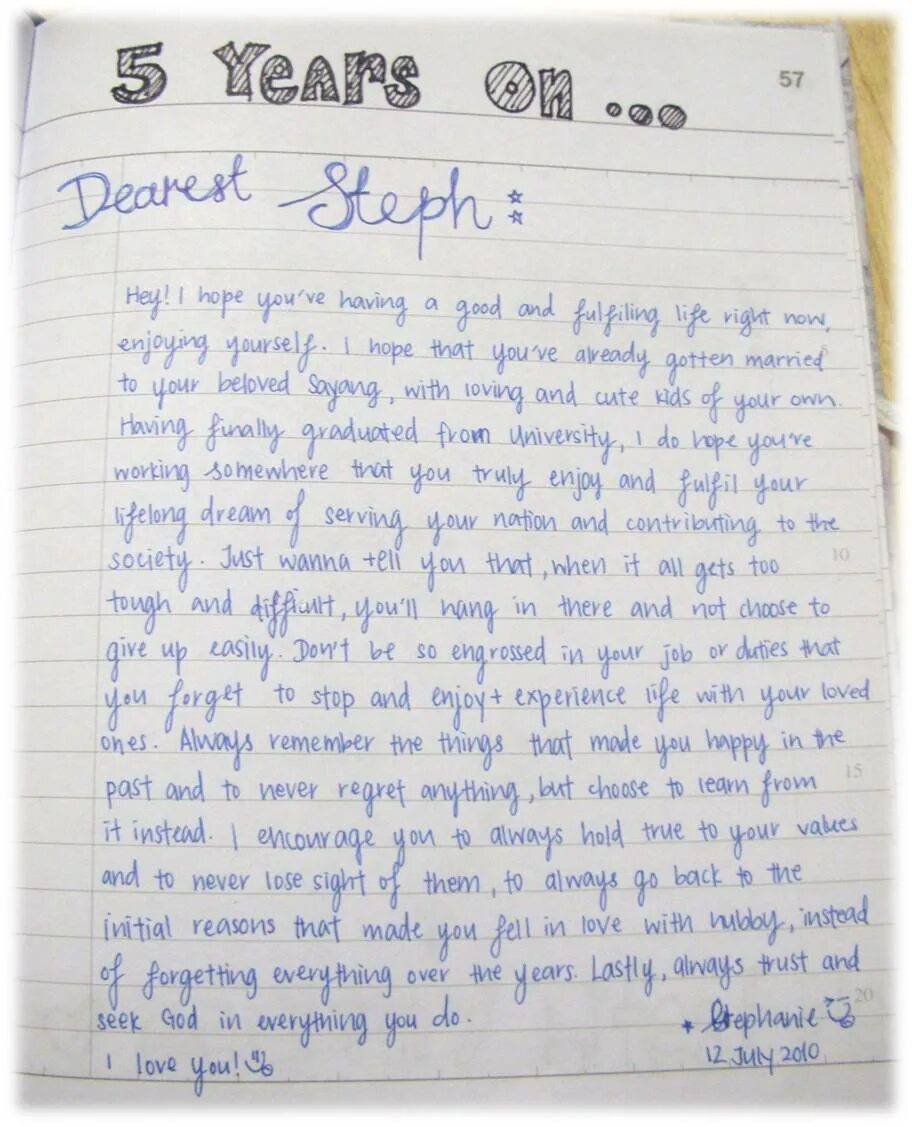 5 Years on...
57
Dearest Steph:
Hey! I hope you've having a good and fulfiling life right now,
enjoying yourself. I hope that you've already gotten married
to your beloved Sayang, with loving and cute kids of your own.
Having finally graduated from University, I do hope you're
working somewhere that you truly enjoy and fulfil your
lifelong dream of serving your nation and contributing to the
society. Just wanna tell you that, when it all gets too
10
tough and difficult, you'll hang in there and not choose to
give up easily. Don't be so engrossed in your job or duties that
you forget to stop and enjoy + experience life with your loved
ones. Always remember the things that made you happy in the
15
past and to never regret anything, but choose to learn from
it instead. I encourage you to always hold true to your values
and to never lose sight of them, to always go back to the
initial reasons that made you fell in love with hubby, instead
of forgetting everything over the years. Lastly, always trust and
20
seek God in everything you do.
Stephanie
I love you!
12 July 2010